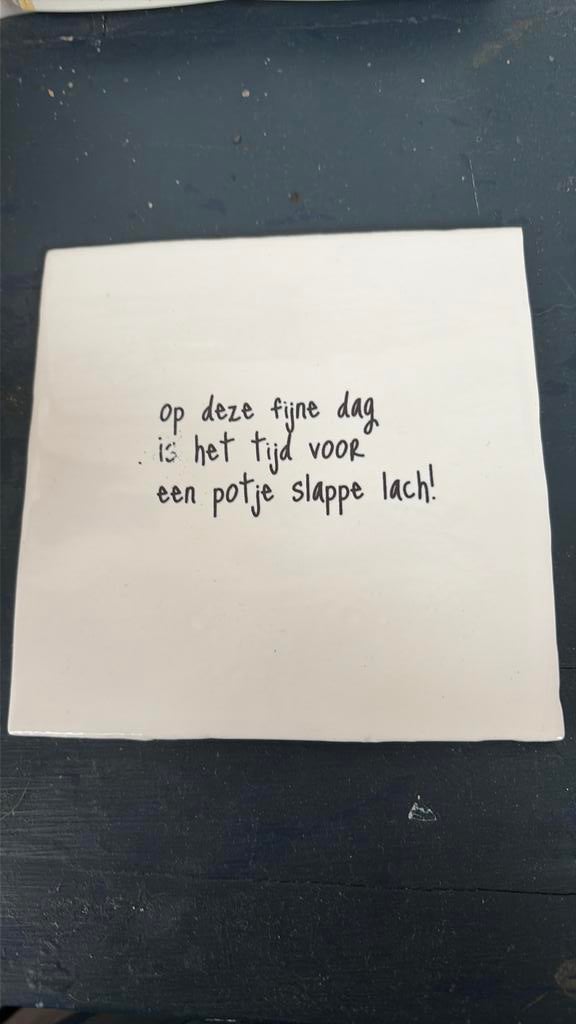 op deze fijne dag
is het tijd voor
een potje slappe lach!